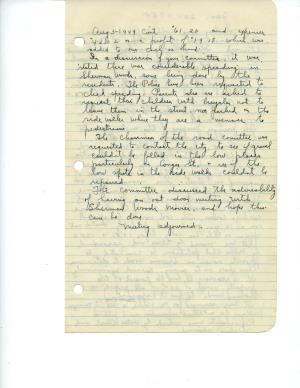 Aug 3-1949 Cost $61.20 and
a profit of $19.18 which was
added to our cash on hand.
In a discussion of your committee, it was
stated there was considerable speeding in
Sherman Woods, some being done by the
residents. The Police have been requested to
check speeding. Parents also are asked to
request their children with bicycles not to
leave them in the street, nor parked on the
side walks where they are a menace to
pedestrians.
The chairman of the road committee was
requested to contact the city to see if gravel
couldn't be filled in the low places
particularly on St. & see if the
low spots in the side walks couldn't be
repaired.
The committee discussed the advisability
of having an out door meeting with
Sherman Woods Movies, and hope this
can be done.
Meeting adjourned.